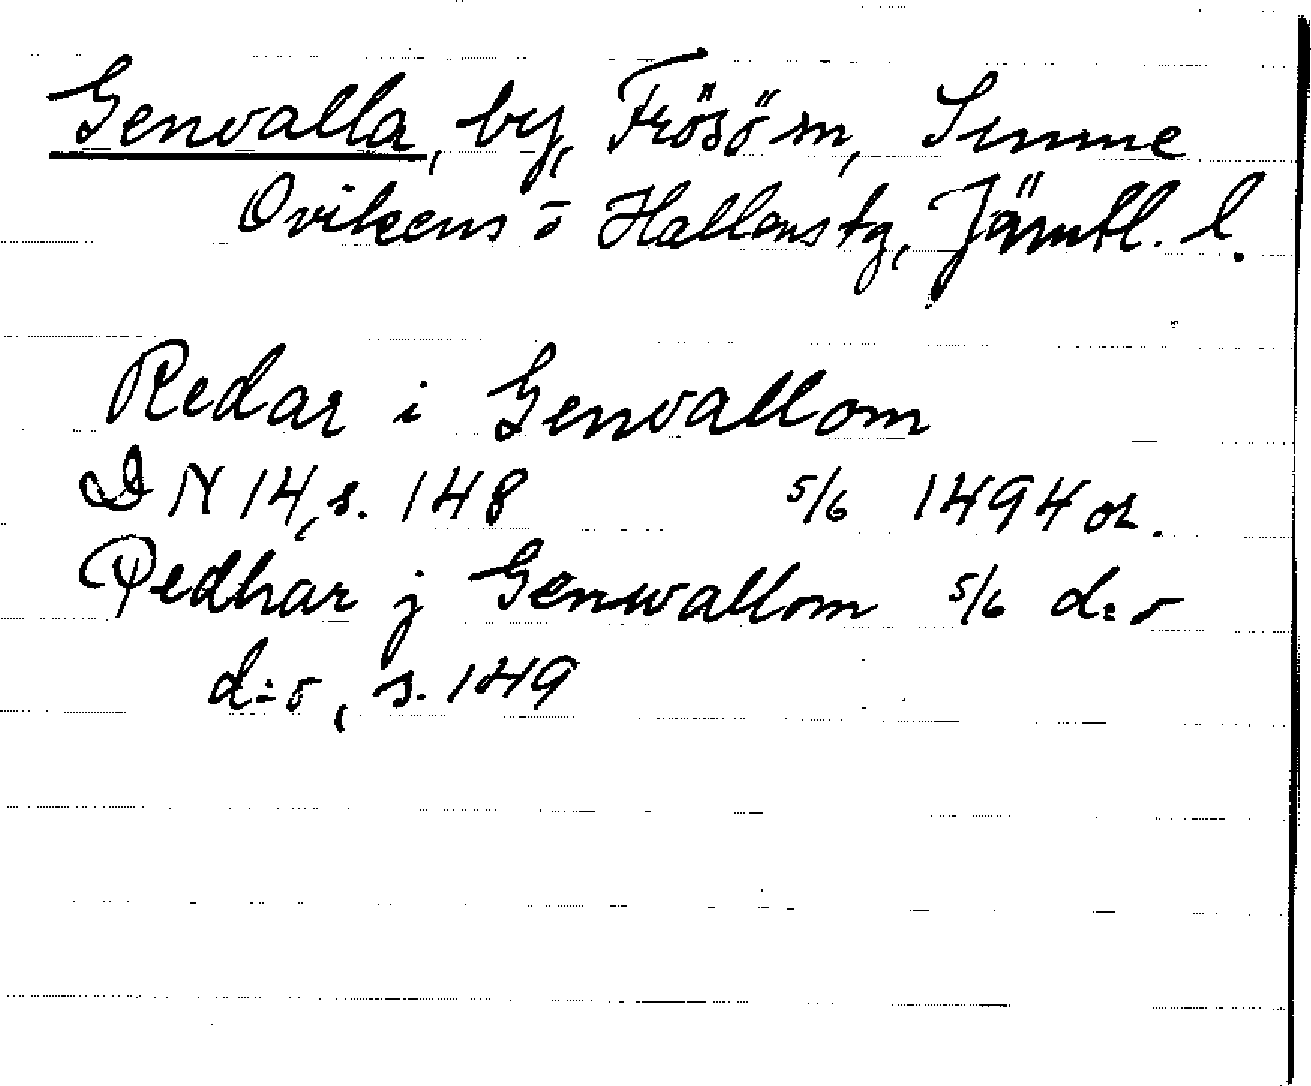 Genvalla, by, Frösö sn, Sunne
Ovikens o Hallens tg, Jämtl. l.
Redar i Genvallom
DN 14, s. 148 5/6 1494 or.
Pedhar j Genwallom 5/6 d:o
d:o, s. 149